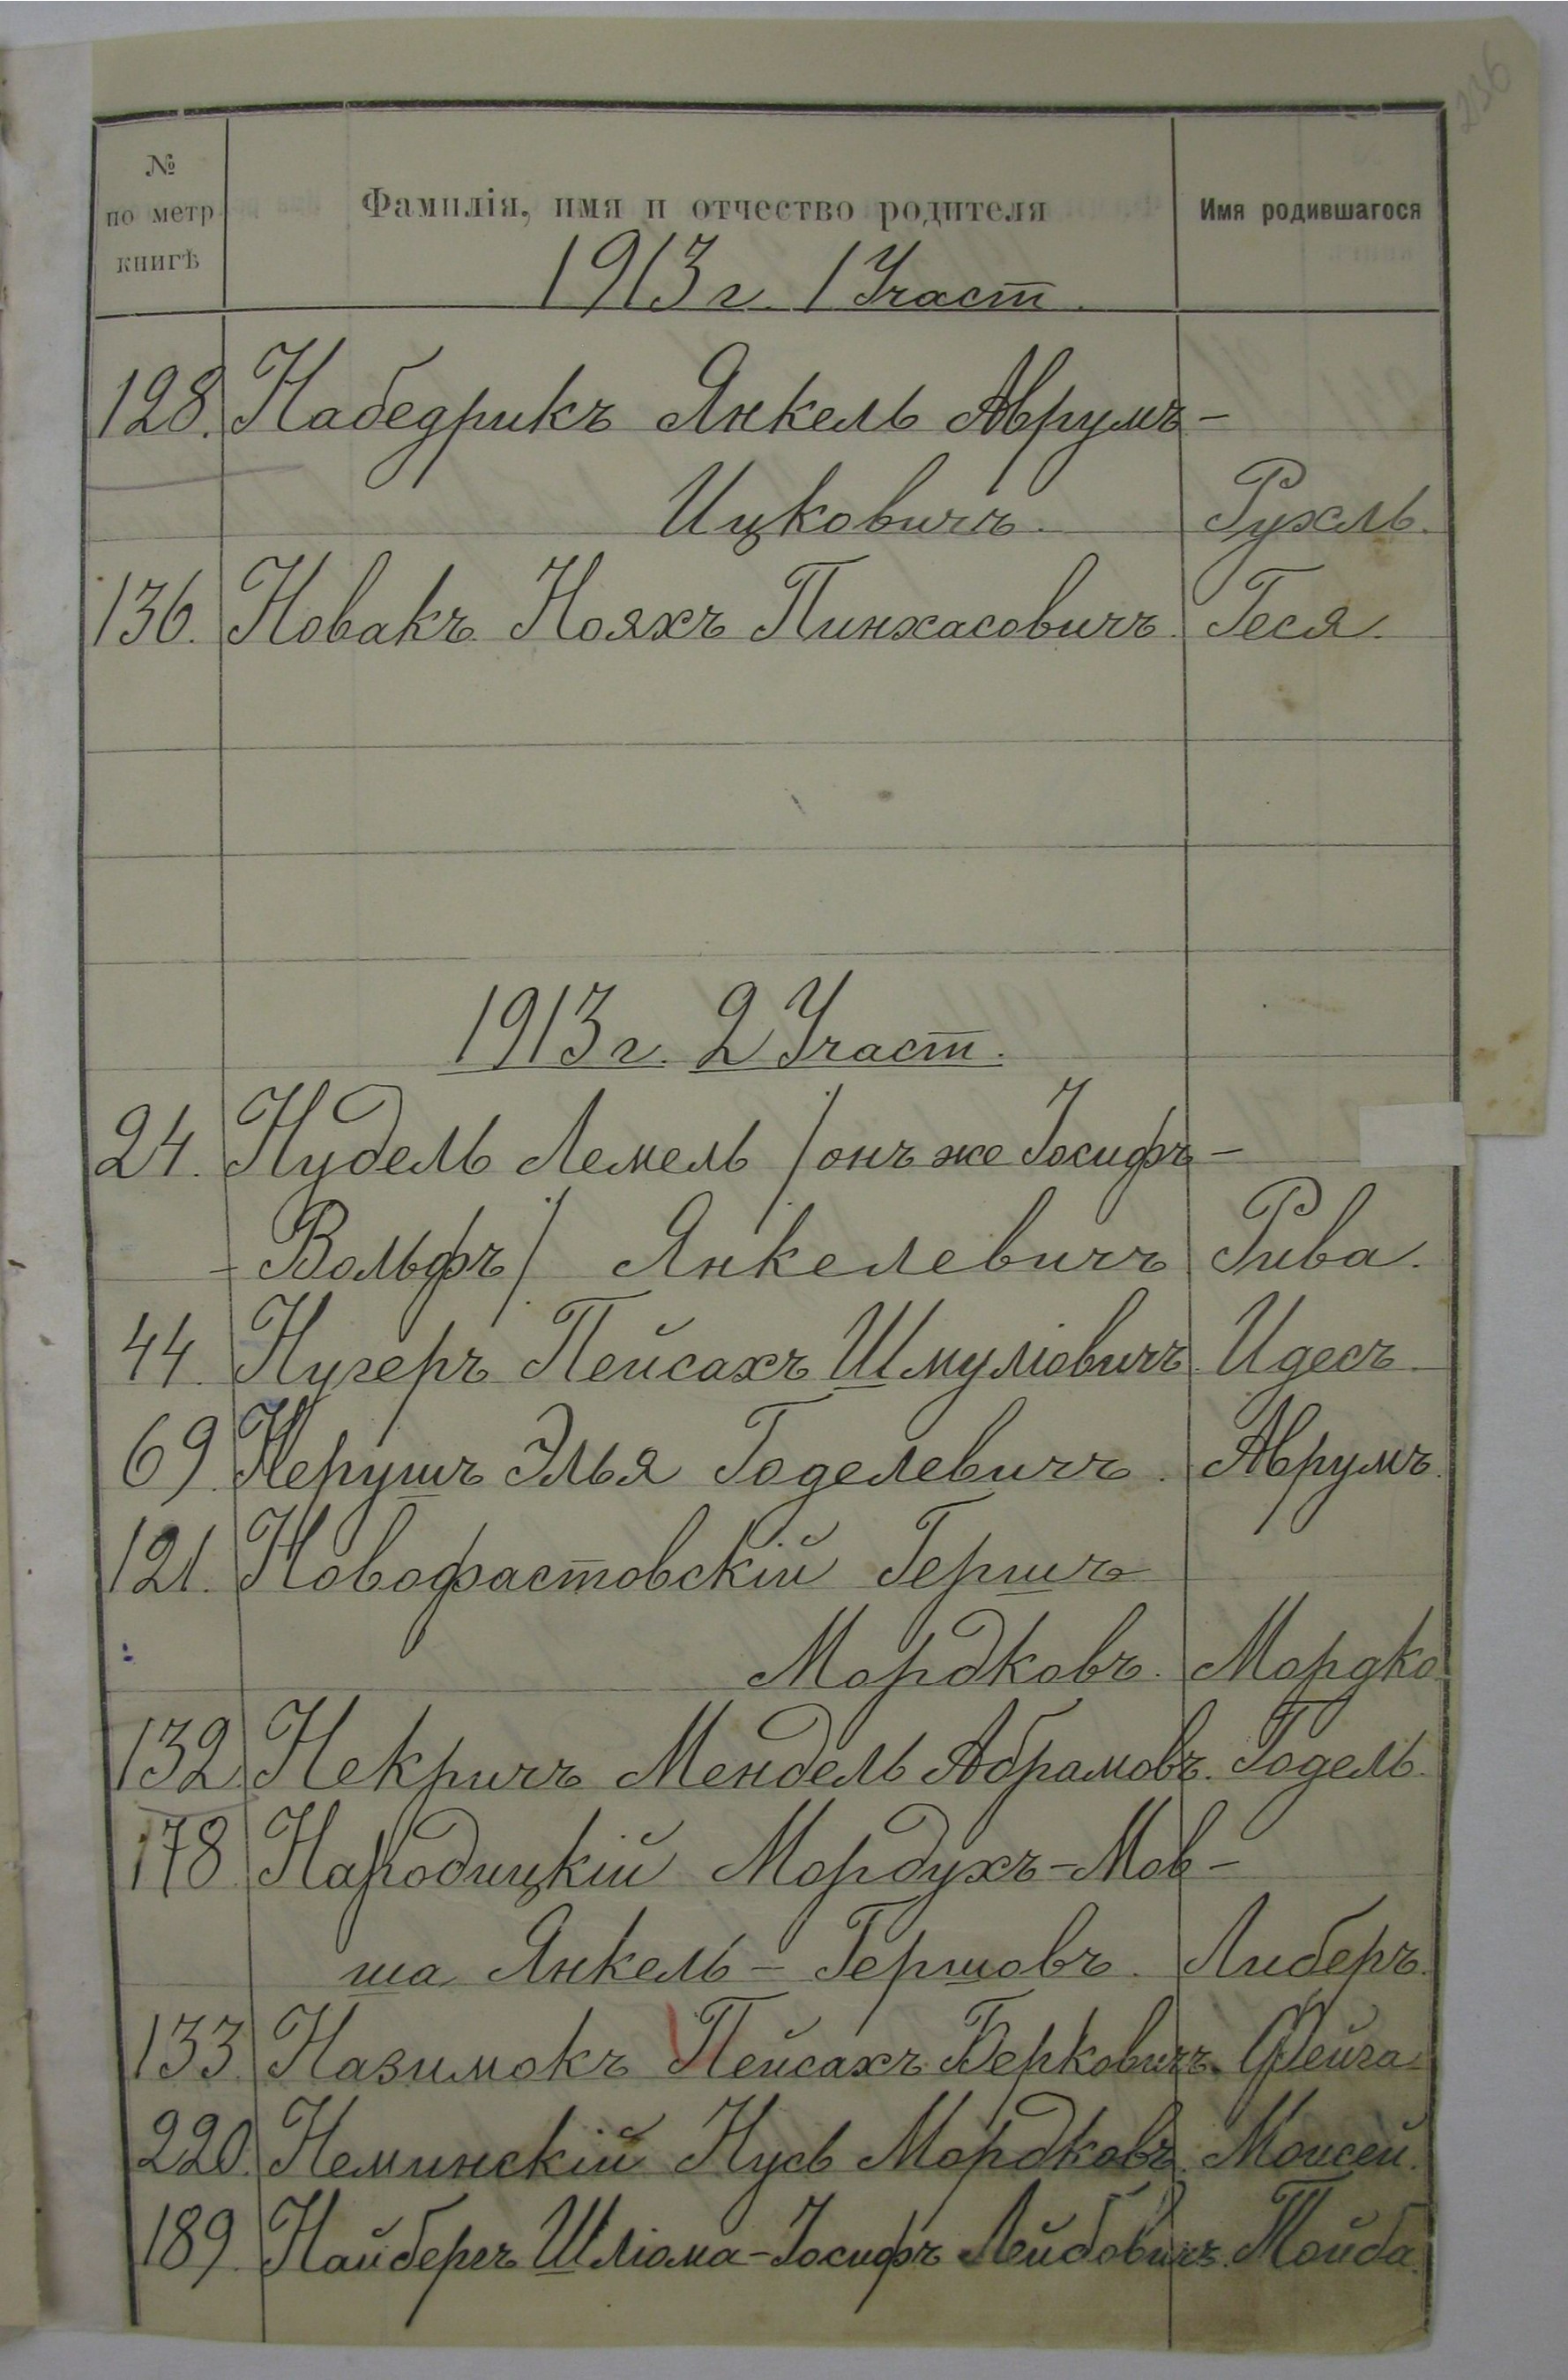 236
№ по метр. книгѣ	Фамилія, имя и отчество родителя	Имя родившагося
1913 г. 1 Участ.
128. Набедрикъ Янкель Аврумъ-
Ицковичъ. Рухль.
136. Новакъ Нояхъ Пинхасовичъ. Геся.
1913 г. 2 Участ.
24. Нудель Лемель / онъ же Іосифъ-
-Вольфъ / Янкелевичъ Рива.
44. Нугеръ Пейсахъ Шмуліовичъ Идесъ
69. Нерушъ Элья Годелевичъ. Аврумъ.
121. Новофастовскій Гершъ
Мордковъ. Мордко
132 Некричъ Мендель Абрамовъ. Годель.
178 Народицкій Мордухъ-Мов-
ша Янкель-Гершовъ. Либеръ.
133. Назимокъ Пейсахъ Берковичъ. Фейга
220. Неминскій Нусь Мордковъ. Моисей.
189. Найбергъ Шліома-Іосифъ Лейбовичъ. Тойба.